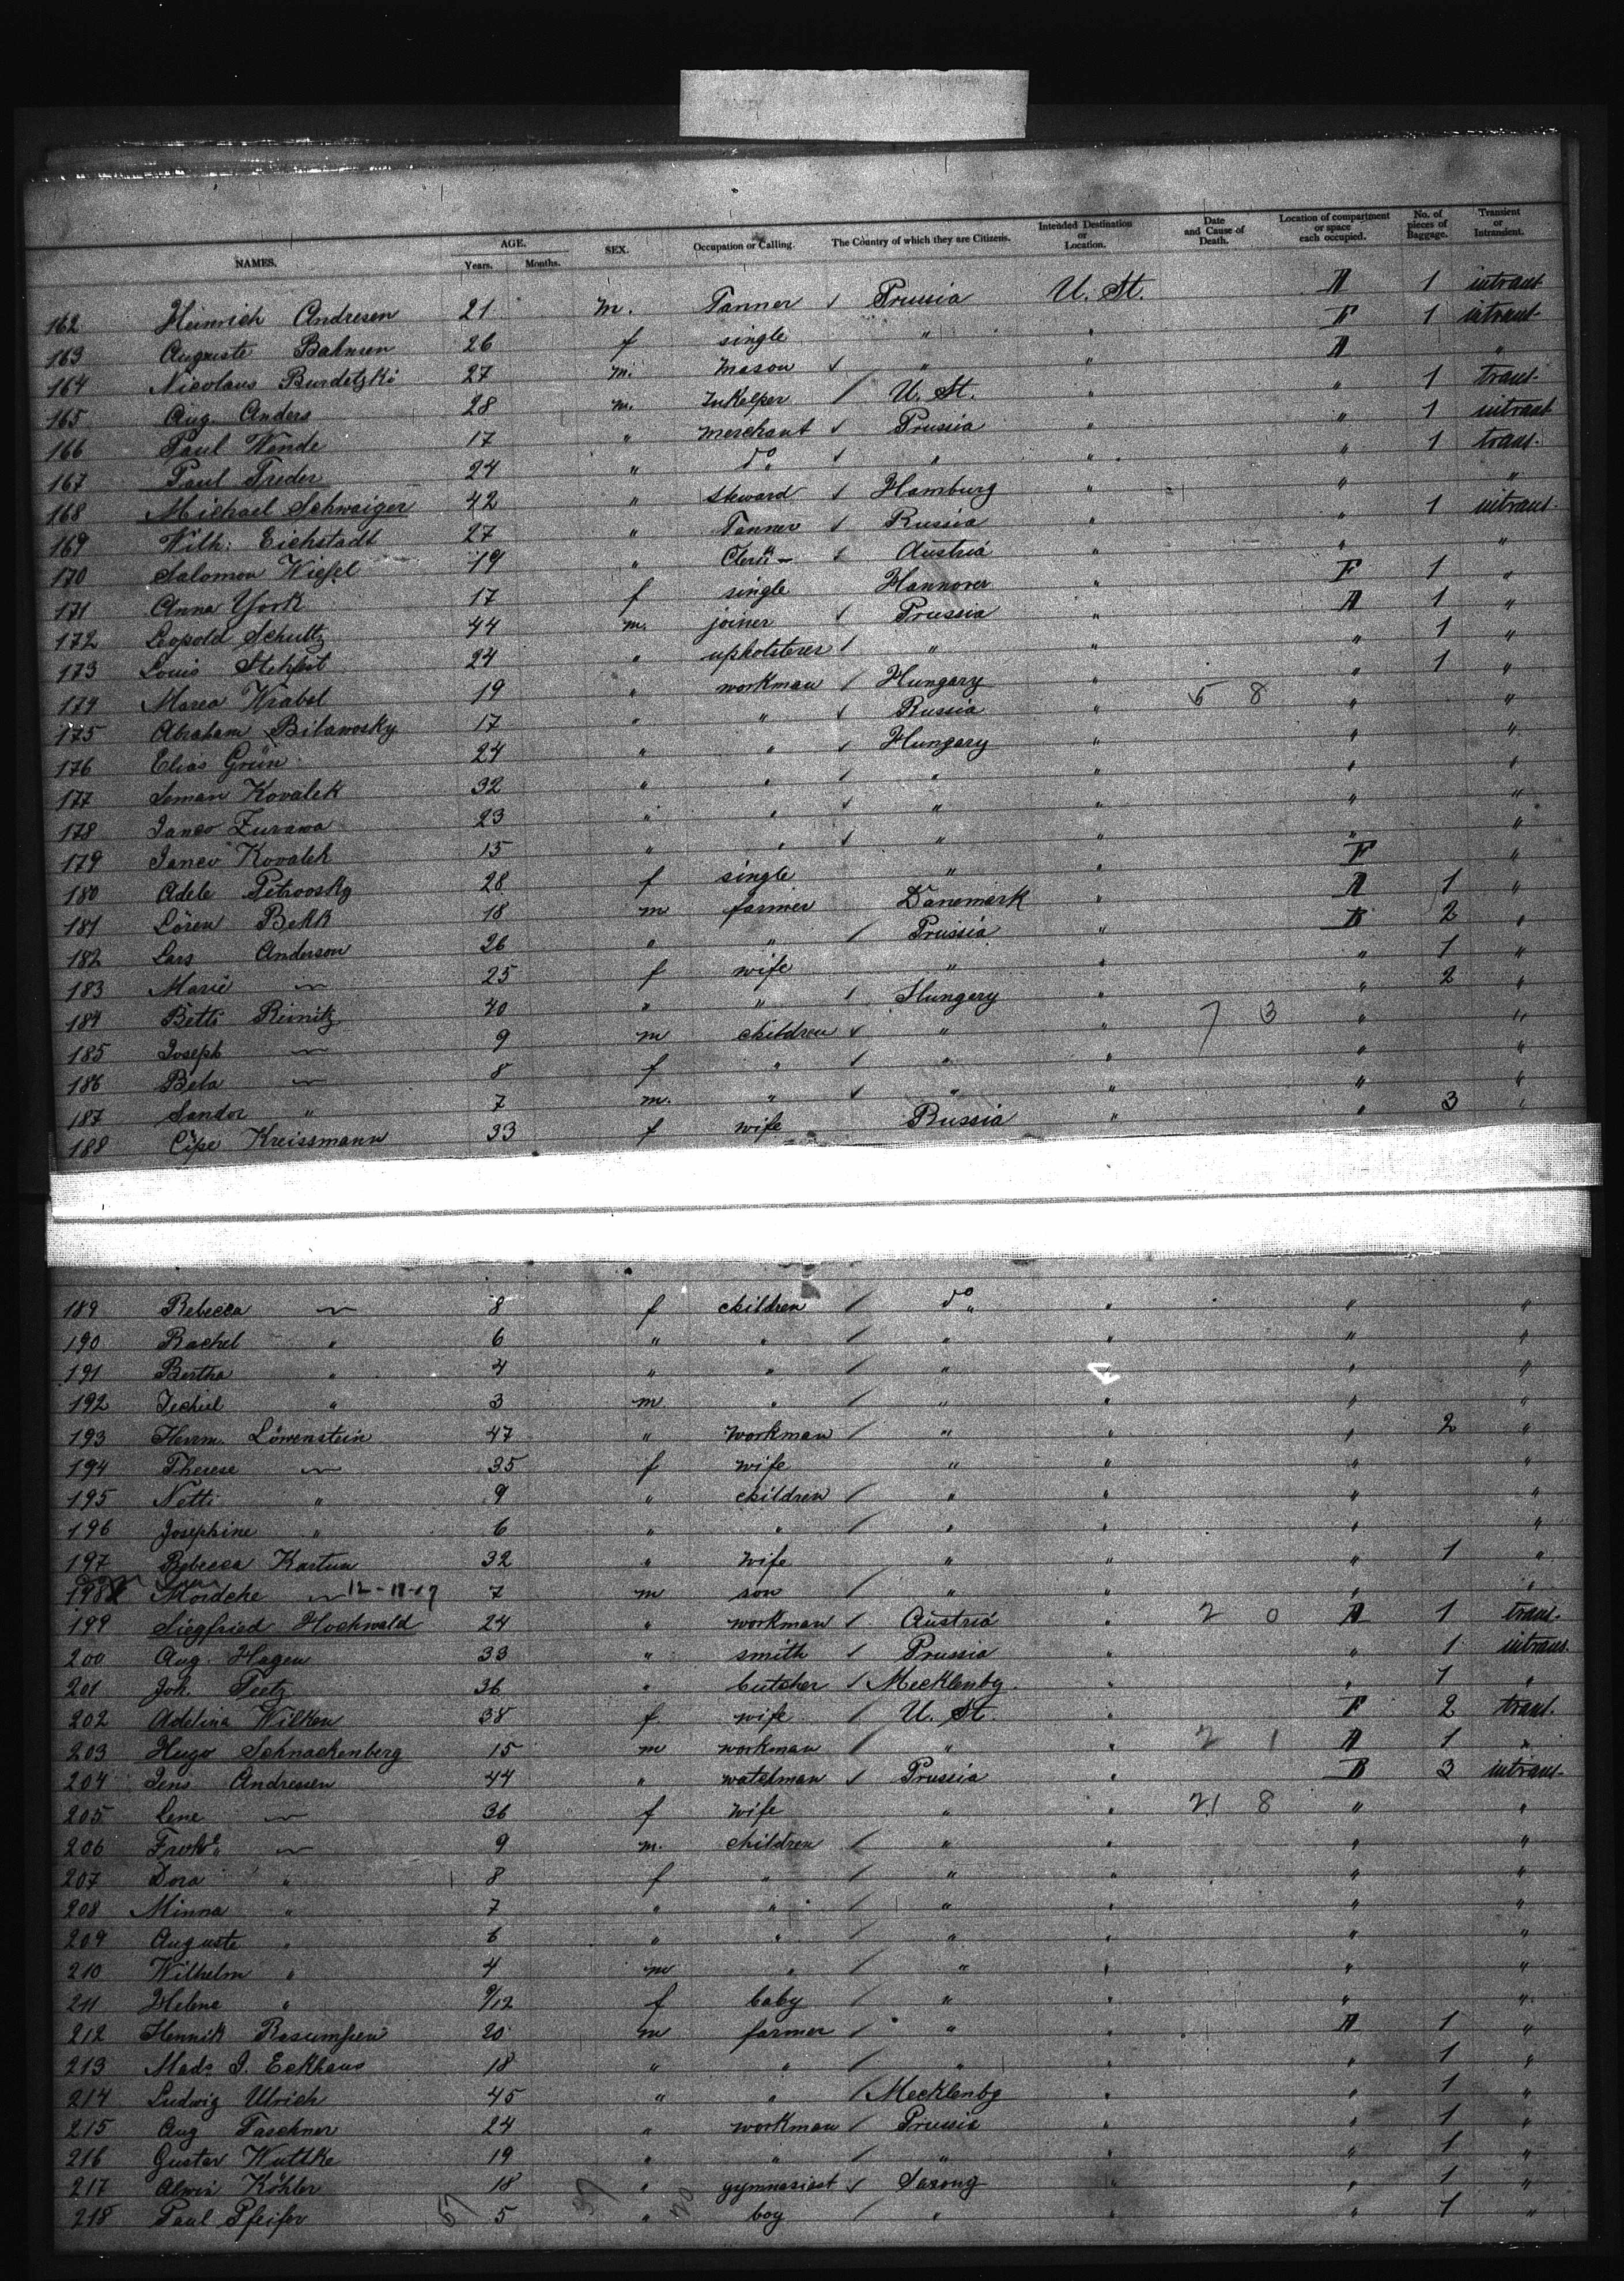 NAMES. AGE. Years. Months. SEX. Occupation or Calling. The Country of which they are Citizens. Intended Destination or Location. Date and Cause of Death. Location of compartment or space each occupied. No. of pieces of Baggage. Transient or Intransient.
162 Heinrich Andresen 21 m. Tanner Prussia U. St. A 1 intrans-
163 Auguste Bahnsen 26 f single " " F 1 intrans-
164 Nicolaus Burdetzki 27 m. mason " " A "
165 Aug. Anders 28 m. Inkeeper U. St. " " 1 trans-
166 Paul Wende 17 " merchant Prussia " " 1 intrans
167 Paul Treder 24 " do " " " 1 trans-
168 Michael Schwaiger 42 " steward Hamburg " " "
169 Wilh: Eichstadt 27 " Tanner Russia " " 1 intrans-
170 Salomon Wiesel 19 " Clerk Austria " " "
171 Anna York 17 f single Hannover " F 1 "
172 Leopold Schultz 44 m. joiner Prussia " A 1 "
173 Louis 24 " upholsterer " " " 1 "
174 Marco Wrabel 19 " workman Hungary " 5 8 " 1 "
175 Abraham Bilawosky 17 " " Russia " " "
176 Elias Grün 24 " " Hungary " " "
177 Seman Kovalek 32 " " " " " "
178 Janco Zurawa 23 " " " " " "
179 Janco Kovalek 15 " " " " " "
180 Adele Petroosky 28 f single " " F "
181 Sören Bekk 18 m farmer Danemark " A 1 "
182 Lars Anderson 26 " " Prussia " B 2 "
183 Marie " 25 f wife " " " 1 "
184 Betti Reinitz 40 " " Hungery " 7 3 " 2 "
185 Joseph " 9 m children " " " "
186 Bela " 8 f " " " " "
187 Sandor " 7 m. " " " " "
188 Cipe Kreissmann 33 f wife Russia " " 3 "
189 Rebecca " 8 f children do " " "
190 Rachel " 6 " " " " " "
191 Bertha " 4 " " " " " "
192 Jechiel " 3 m " " " " "
193 Herrm. Löwenstein 47 " workman " " " 2 "
194 Therese " 35 f wife " " " "
195 Netti " 9 " children " " " "
196 Josephine " 6 " " " " " "
197 Rebecca Kartun 32 " wife " " " 1 "
198 Mordche " 12-11-17 7 m son " " " "
199 Siegfried Hochwald 24 " workman Austria " 2 0 A 1 trans-
200 Aug. Hagen 33 " smith Prussia " " 1 intrans.
201 Joh. Teetz 36 " butcher Mecklenbg. " " 1 "
202 Adelina Wilken 38 f. wife U. St. " F 2 trans-
203 Hugo Schnackenberg 15 m workman " " 2 1 A 1 "
204 Jens Andressen 44 " watchman Prussia " B 3 intrans-
205 Lene " 36 f wife " " 21 8 " "
206 " 9 m. children " " " "
207 Dora " 8 f " " " " "
208 Minna " 7 " " " " " "
209 Auguste " 6 " " " " " "
210 Wilhelm " 4 m " " " " "
211 Helene " 9/12 f baby " " " "
212 Hennik 20 m farmer " " A 1 "
213 Mads J. Eckhaus 18 " " " " " 1 "
214 Ludwig Ulrich 45 " " Mecklenbg " " 1 "
215 Aug Taschner 24 " workman Prussia " " 1 "
216 Gustav Wuttke 19 " " " " " 1 "
217 Alwin Köhler 18 " gymnasiast Saxony " " 1 "
218 Paul Pfeifer 5 " boy " " " 1 "